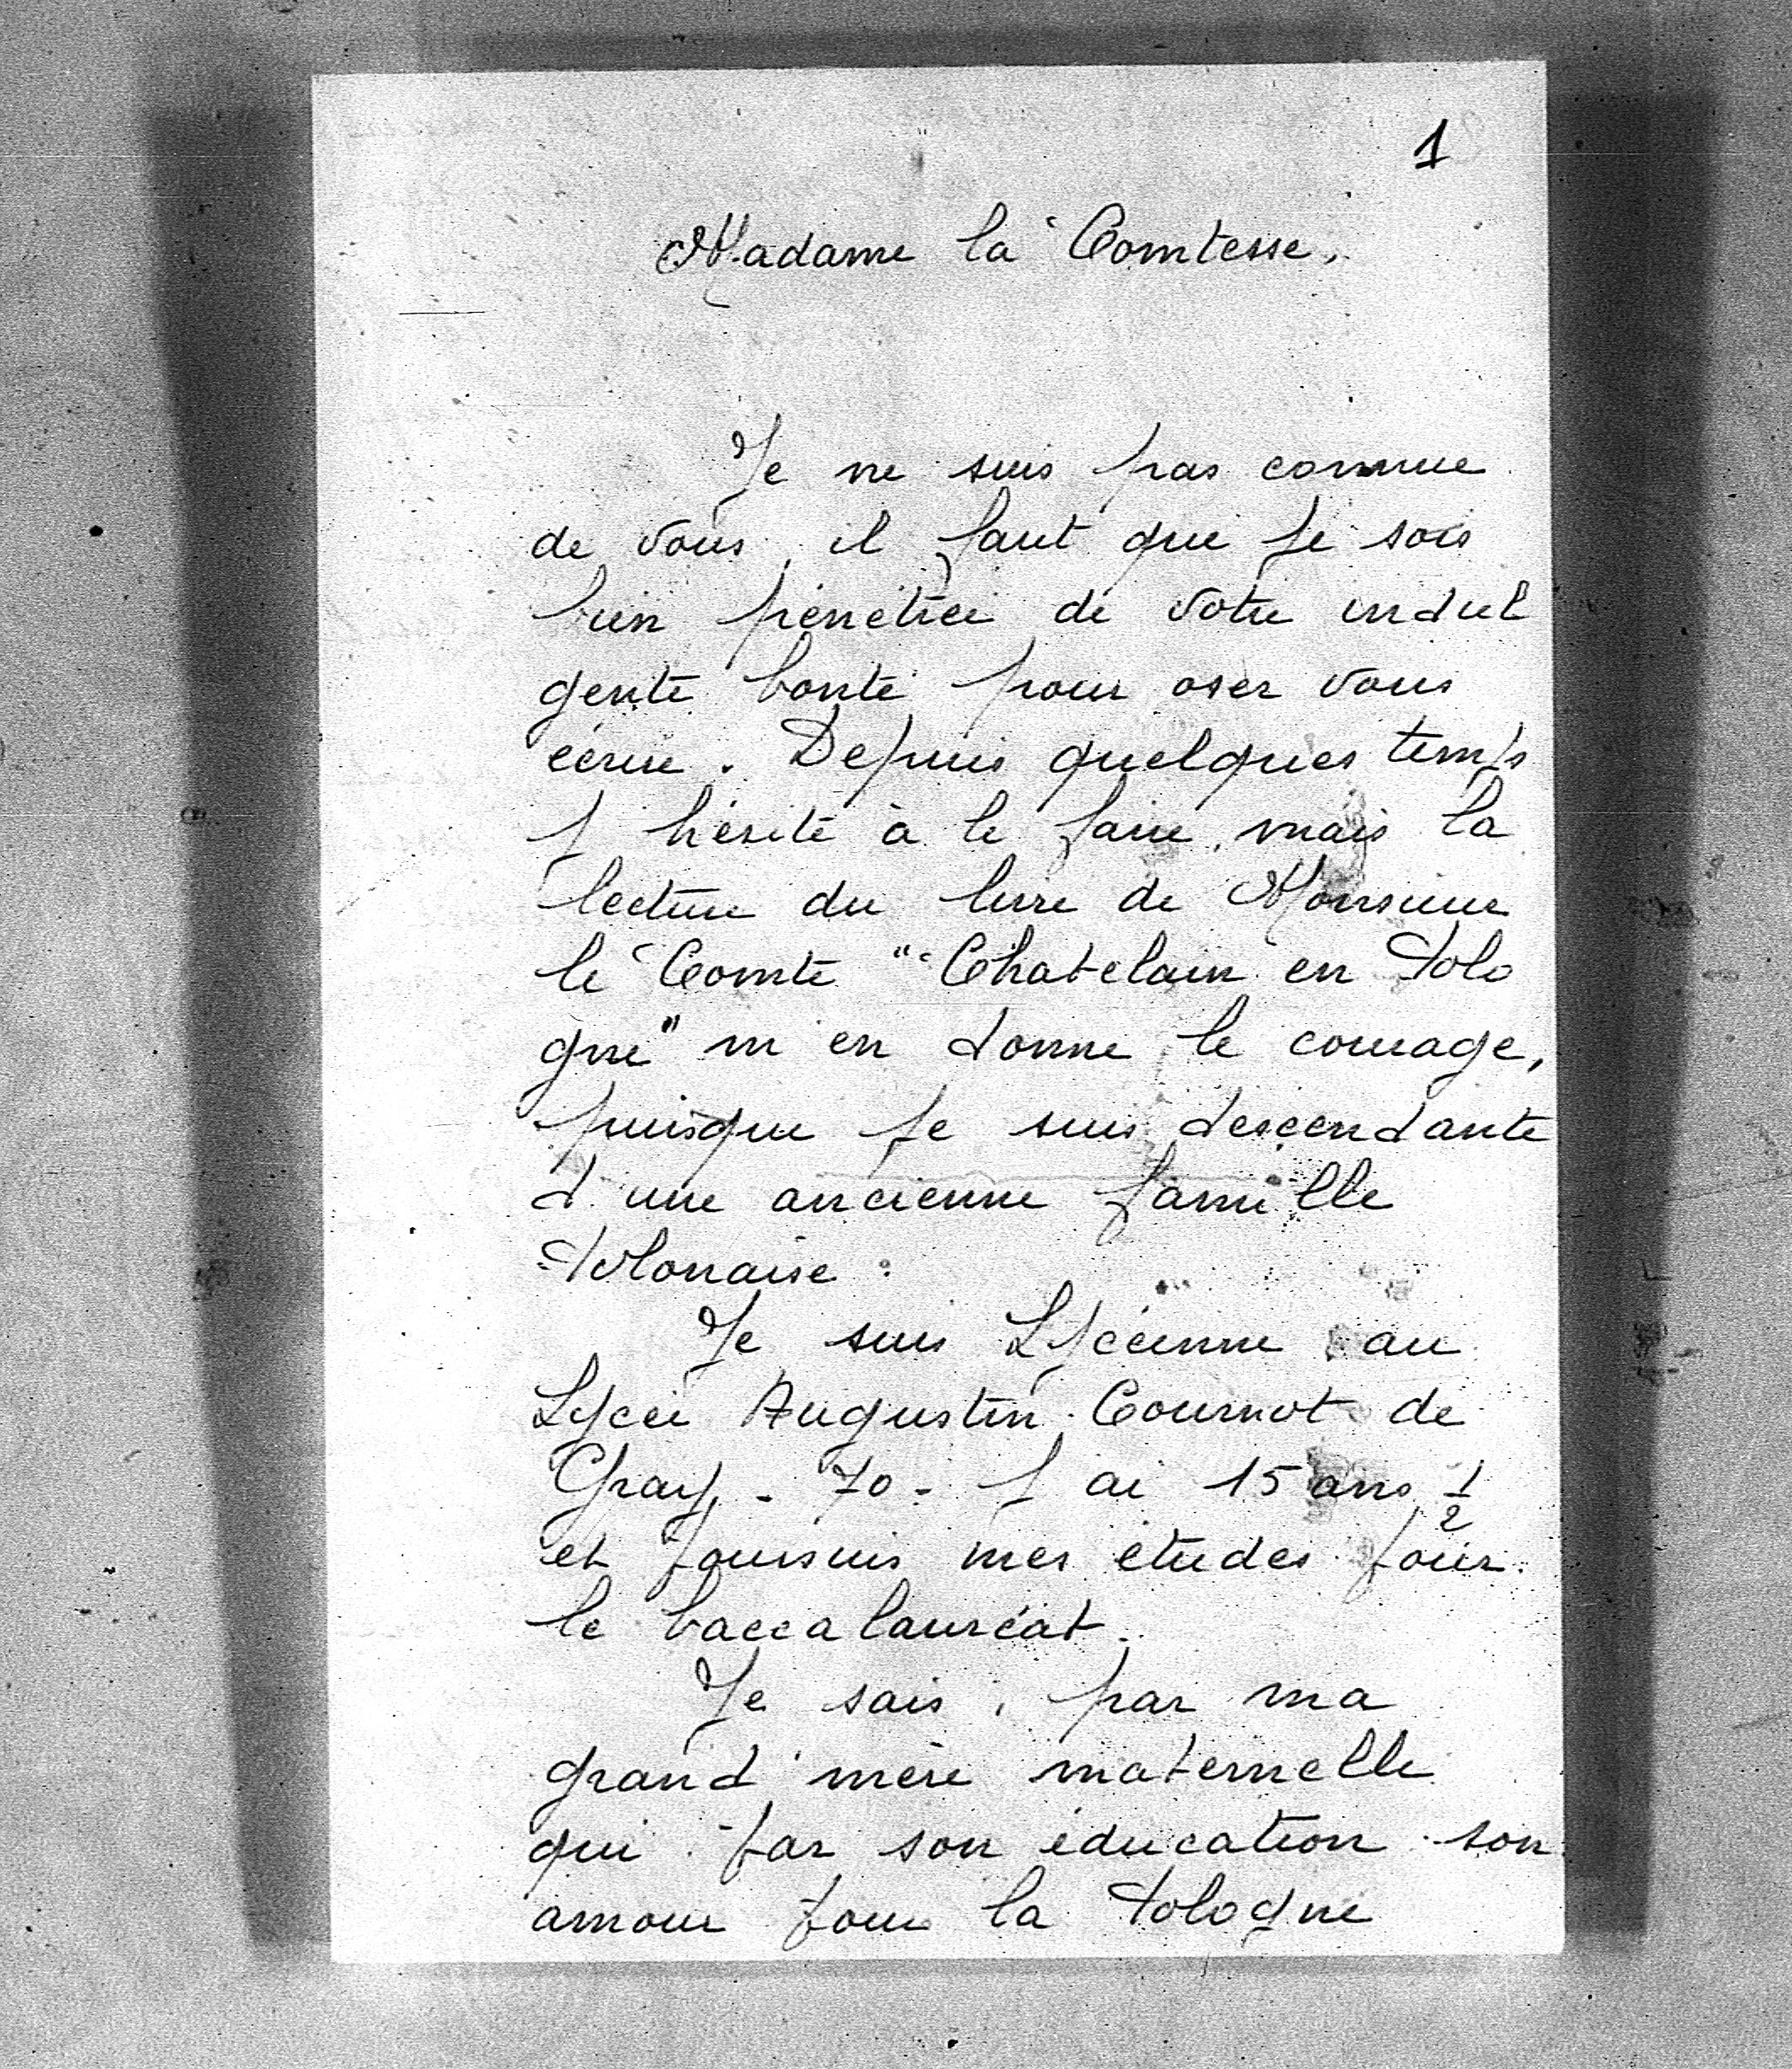 1
Madame la Comtesse,
Je ne suis pas connue
de vous, il faut que je sois
bien pénétrée de votre indul
gente bonté pour oser vous
écrire. Depuis quelques temps
j hésite à le faire, mais la
lecture du livre de Monsieur
le Comte "Chatelain en Solo
gne" m en donne le courage,
puisque je suis descendante
d une ancienne famille
Solonaise :
Je suis Lycéenne au
Lycée Augustin Cournot de
Gray - 70 - J ai 15 ans 1/2
et poursuis mes études pour
le baccalauréat.
Je sais, par ma
grand'mère maternelle
qui par son éducation son
amour pour la Sologne